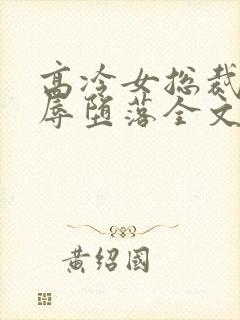 高冷女总裁
辱堕落全文
黄绍國